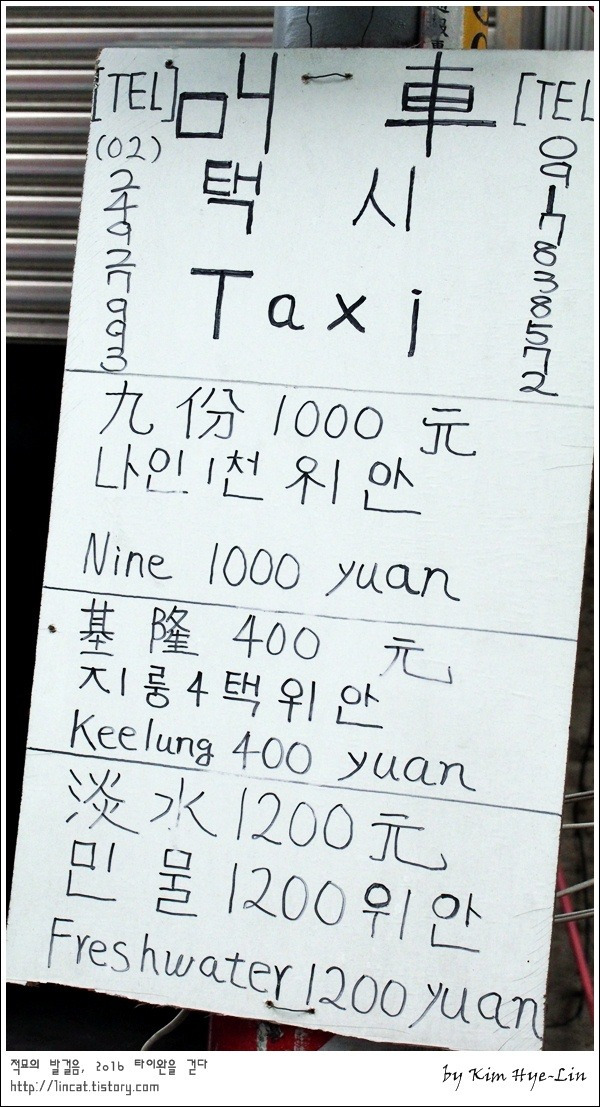 [TEL] 叫 車 [TEL
(02) 24927993
0917838572
택 시
Taxi
九份 1000 元
나인1천 위안
Nine 1000 yuan
基隆 400 元
지룽4택위안
Keelung 400 yuan
淡水1200元
민물1200위안
Freshwater 1200 yuan
적묘의 발걸음, 2016 타이완을 걷다
http://lincat.tistory.com
by Kim Hye-Lin